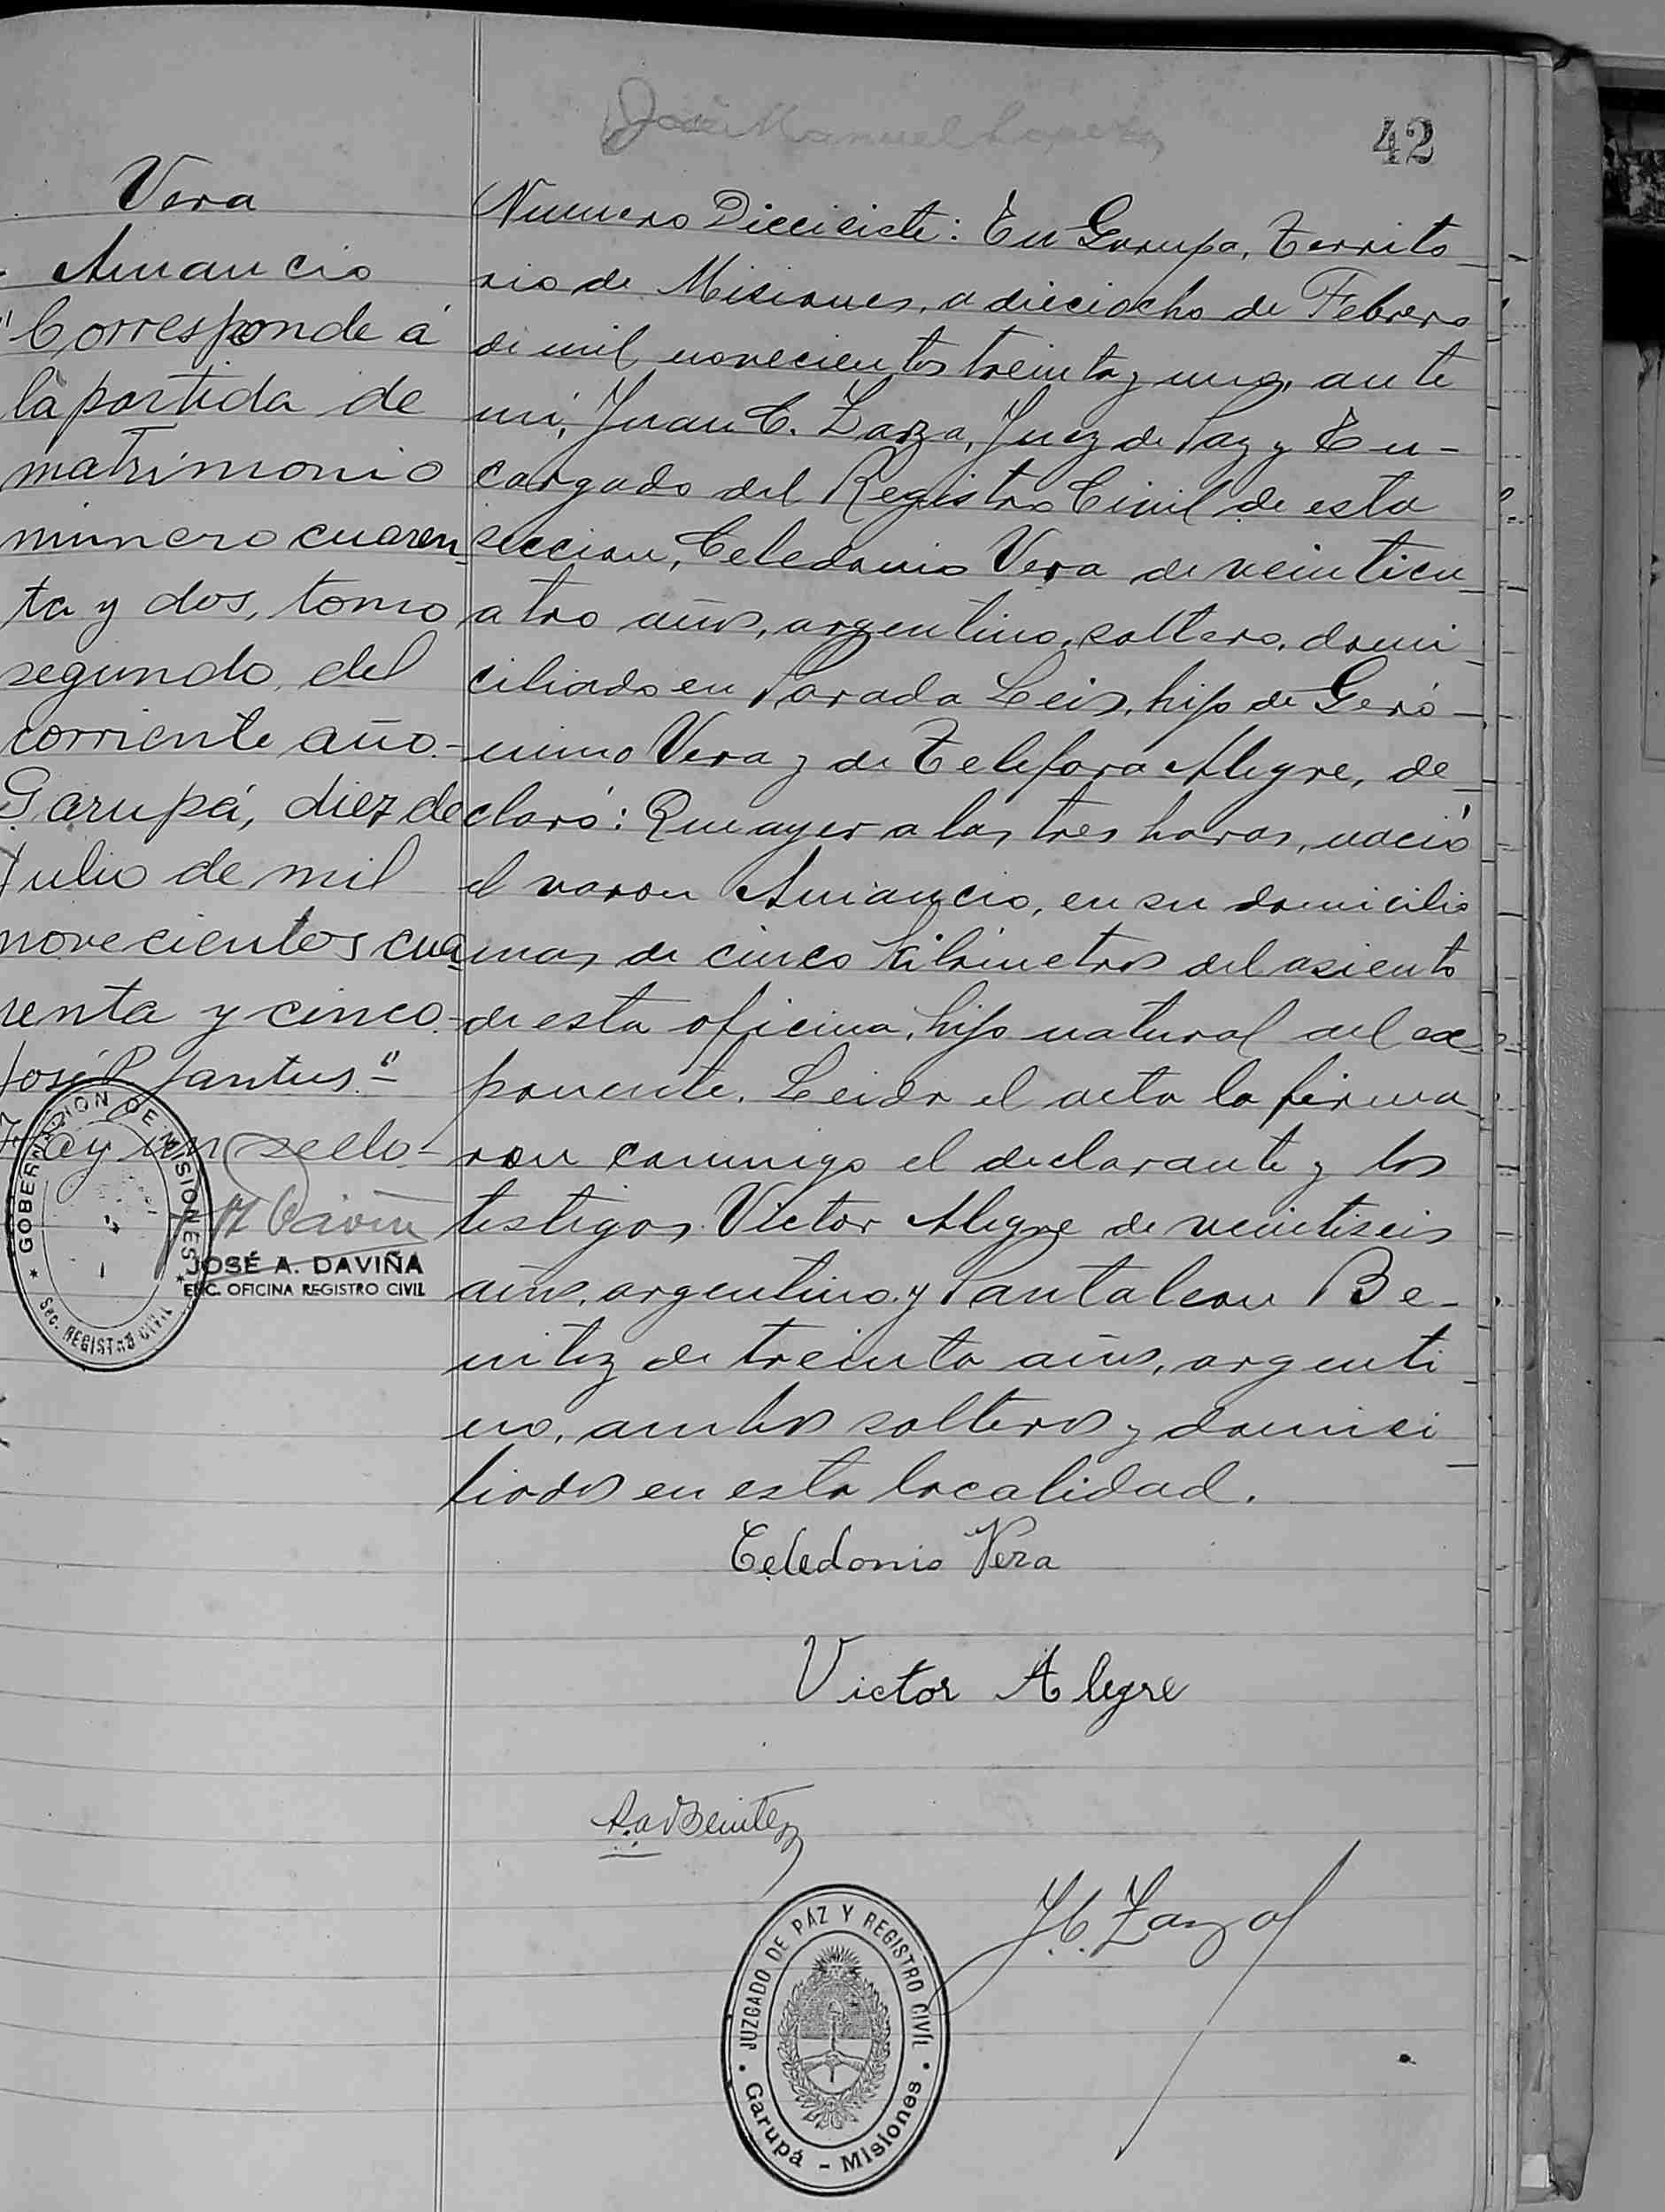 José Manuel Lopez
42
Vera
Amancio
"Corresponde á
la partida de
matrimonio
número cuaren-
ta y dos, tomo
segundo, del
corriente año.-
Garupá, diez de
Julio de mil
novecientos cua-
renta y cinco.-
José P. Jantus."-
Hay un sello.-
JOSÉ A. DAVIÑA
ENC. OFICINA REGISTRO CIVIL
GOBERNACION DE MISIONES
Sec. REGISTRO CIVIL
Numero Diecisiete: En Garupa, Territo-
rio de Misiones, a dieciocho de Febrero
de mil novecientos treinta y uno, ante
mi, Juan C. Zarza, Juez de Paz y En-
cargado del Registro Civil de esta
seccion, Celedonio Vera de veinticu-
atro años, argentino, soltero, domi-
ciliado en Parada Leis, hijo de Geró-
nimo Vera y de Telefora Alegre, de-
claró: Que ayer a las tres horas, nació
el varon Amancio, en su domicilio
mas de cinco kilómetros del asiento
de esta oficina, hijo natural del ex-
ponente. Leida el acta la firma-
ron conmigo el declarante y los
testigos Victor Alegre de veintiseis
años, argentino y Pantaleon Be-
nitez de treinta años, argenti-
no, ambos solteros y domici-
liados en esta localidad.
Celedonio Vera
Victor Alegre
Benitez
J.C. Zarza
JUZGADO DE PAZ Y REGISTRO CIVIL
Garupá - Misiones